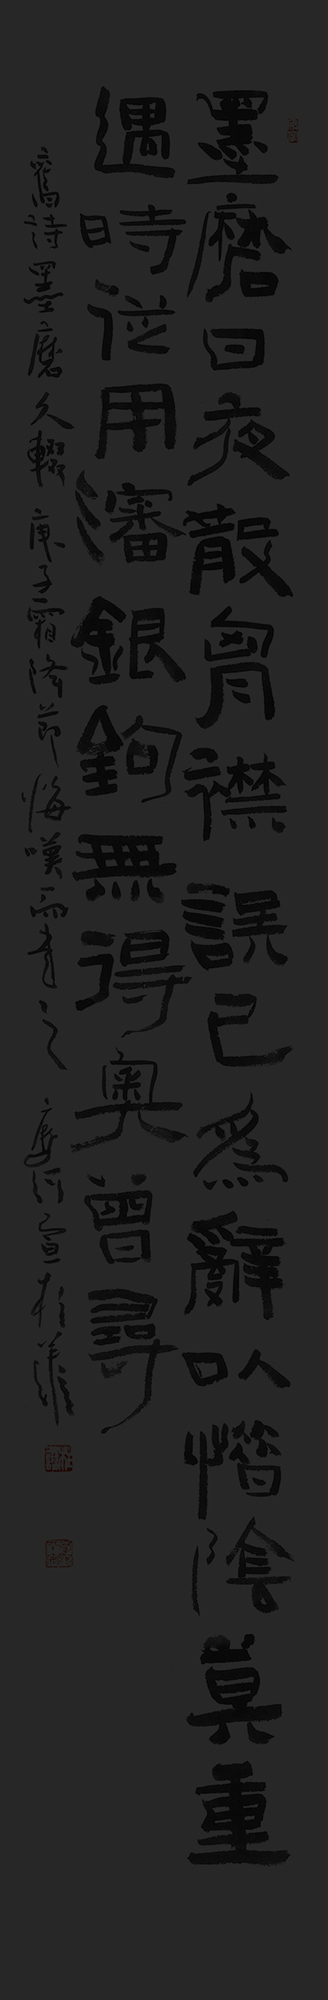 墨磨日夜散胷襟誤己爲辭以惜陰莫重
遇時從用瀋銀鉤無得奧曾尋
舊詩墨磨久輟 庚子霜降節悔嘆而書之